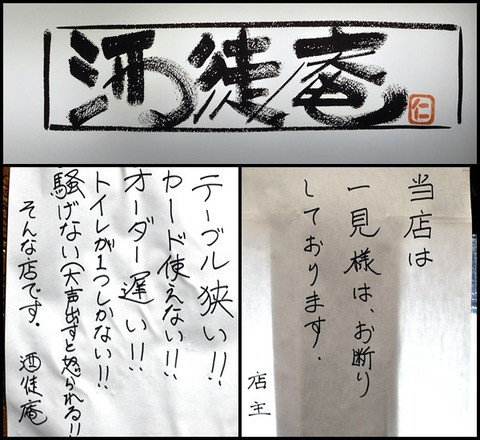 酒徒庵
仁
テーブル狭い!!
カード使えない!!
オーダー遅い!!
トイレが1つしかない!!
騒げない(大声出すと怒られる!!
そんな店です.
酒徒庵
当店は
一見様は、お断り
しております.
店主